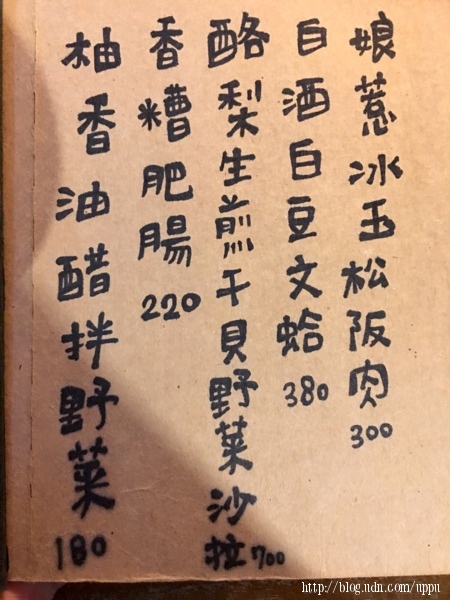 娘惹冰玉松阪肉300
白酒白豆文蛤380
酪梨生煎干貝野菜沙拉700
香糟肥腸220
柚香油醋拌野菜180
http://blog.udn.com/uppu